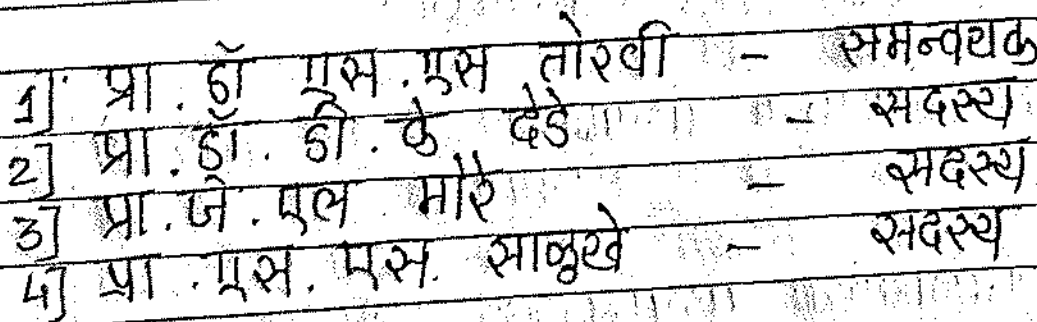 1] प्रा. डॉ एस.एस तोरवी - समन्वयक
2] प्रा.डॉ. डी.के देडे - सदस्य
3] प्रा.जे.एल मोरे - सदस्य
4] प्रा.एस.एस. साळुखे - सदस्य